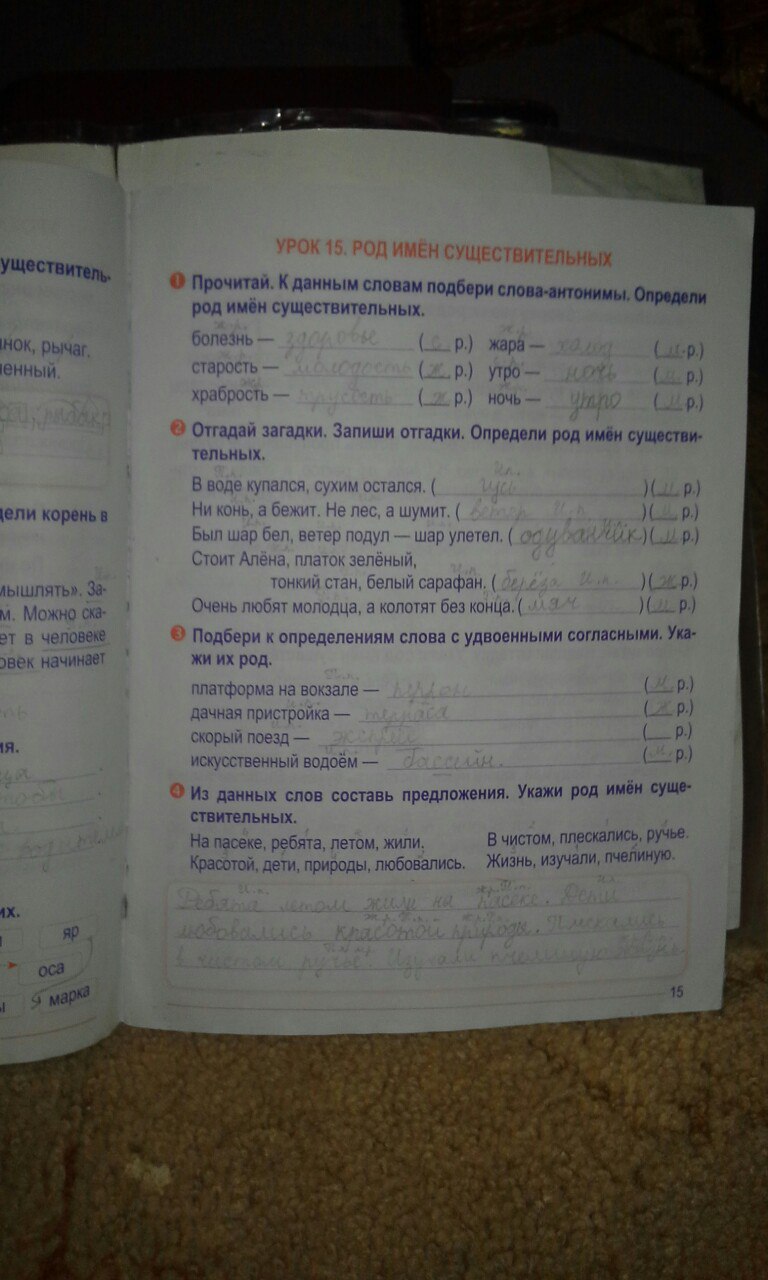 уществитель-
нок, рычаг.
ленный.
дели корень в
мышлять». За-
м. Можно ска-
ет в человеке
овек начинает
ия.
их.
яр
оса
ы я марка
УРОК 15. РОД ИМЁН СУЩЕСТВИТЕЛЬНЫХ
1 Прочитай. К данным словам подбери слова-антонимы. Определи
род имён существительных.
болезнь — здоровье (с р.) жара — холод (м р.)
старость — молодость (ж р.) утро — ночь (м р.)
храбрость — трусость (ж р.) ночь — утро (м р.)
2 Отгадай загадки. Запиши отгадки. Определи род имён существи-
тельных.
В воде купался, сухим остался. ( гусь )(м р.)
Ни конь, а бежит. Не лес, а шумит. ( ветер И.п. )(м р.)
Был шар бел, ветер подул — шар улетел. ( одуванчик )(м р.)
Стоит Алёна, платок зелёный,
тонкий стан, белый сарафан. ( берёза И.п. )(ж р.)
Очень любят молодца, а колотят без конца. ( мяч )(м р.)
3 Подбери к определениям слова с удвоенными согласными. Ука-
жи их род.
платформа на вокзале — (м р.)
дачная пристройка — терраса (ж р.)
скорый поезд — ( р.)
искусственный водоём — бассейн. (м р.)
4 Из данных слов составь предложения. Укажи род имён суще-
ствительных.
На пасеке, ребята, летом, жили. В чистом, плескались, ручье.
Красотой, дети, природы, любовались. Жизнь, изучали, пчелиную.
Ребята летом жили на пасеке. Дети
любовались красотой природы. Плескались
в чистом ручье. Изучали пчелиную жизнь
15